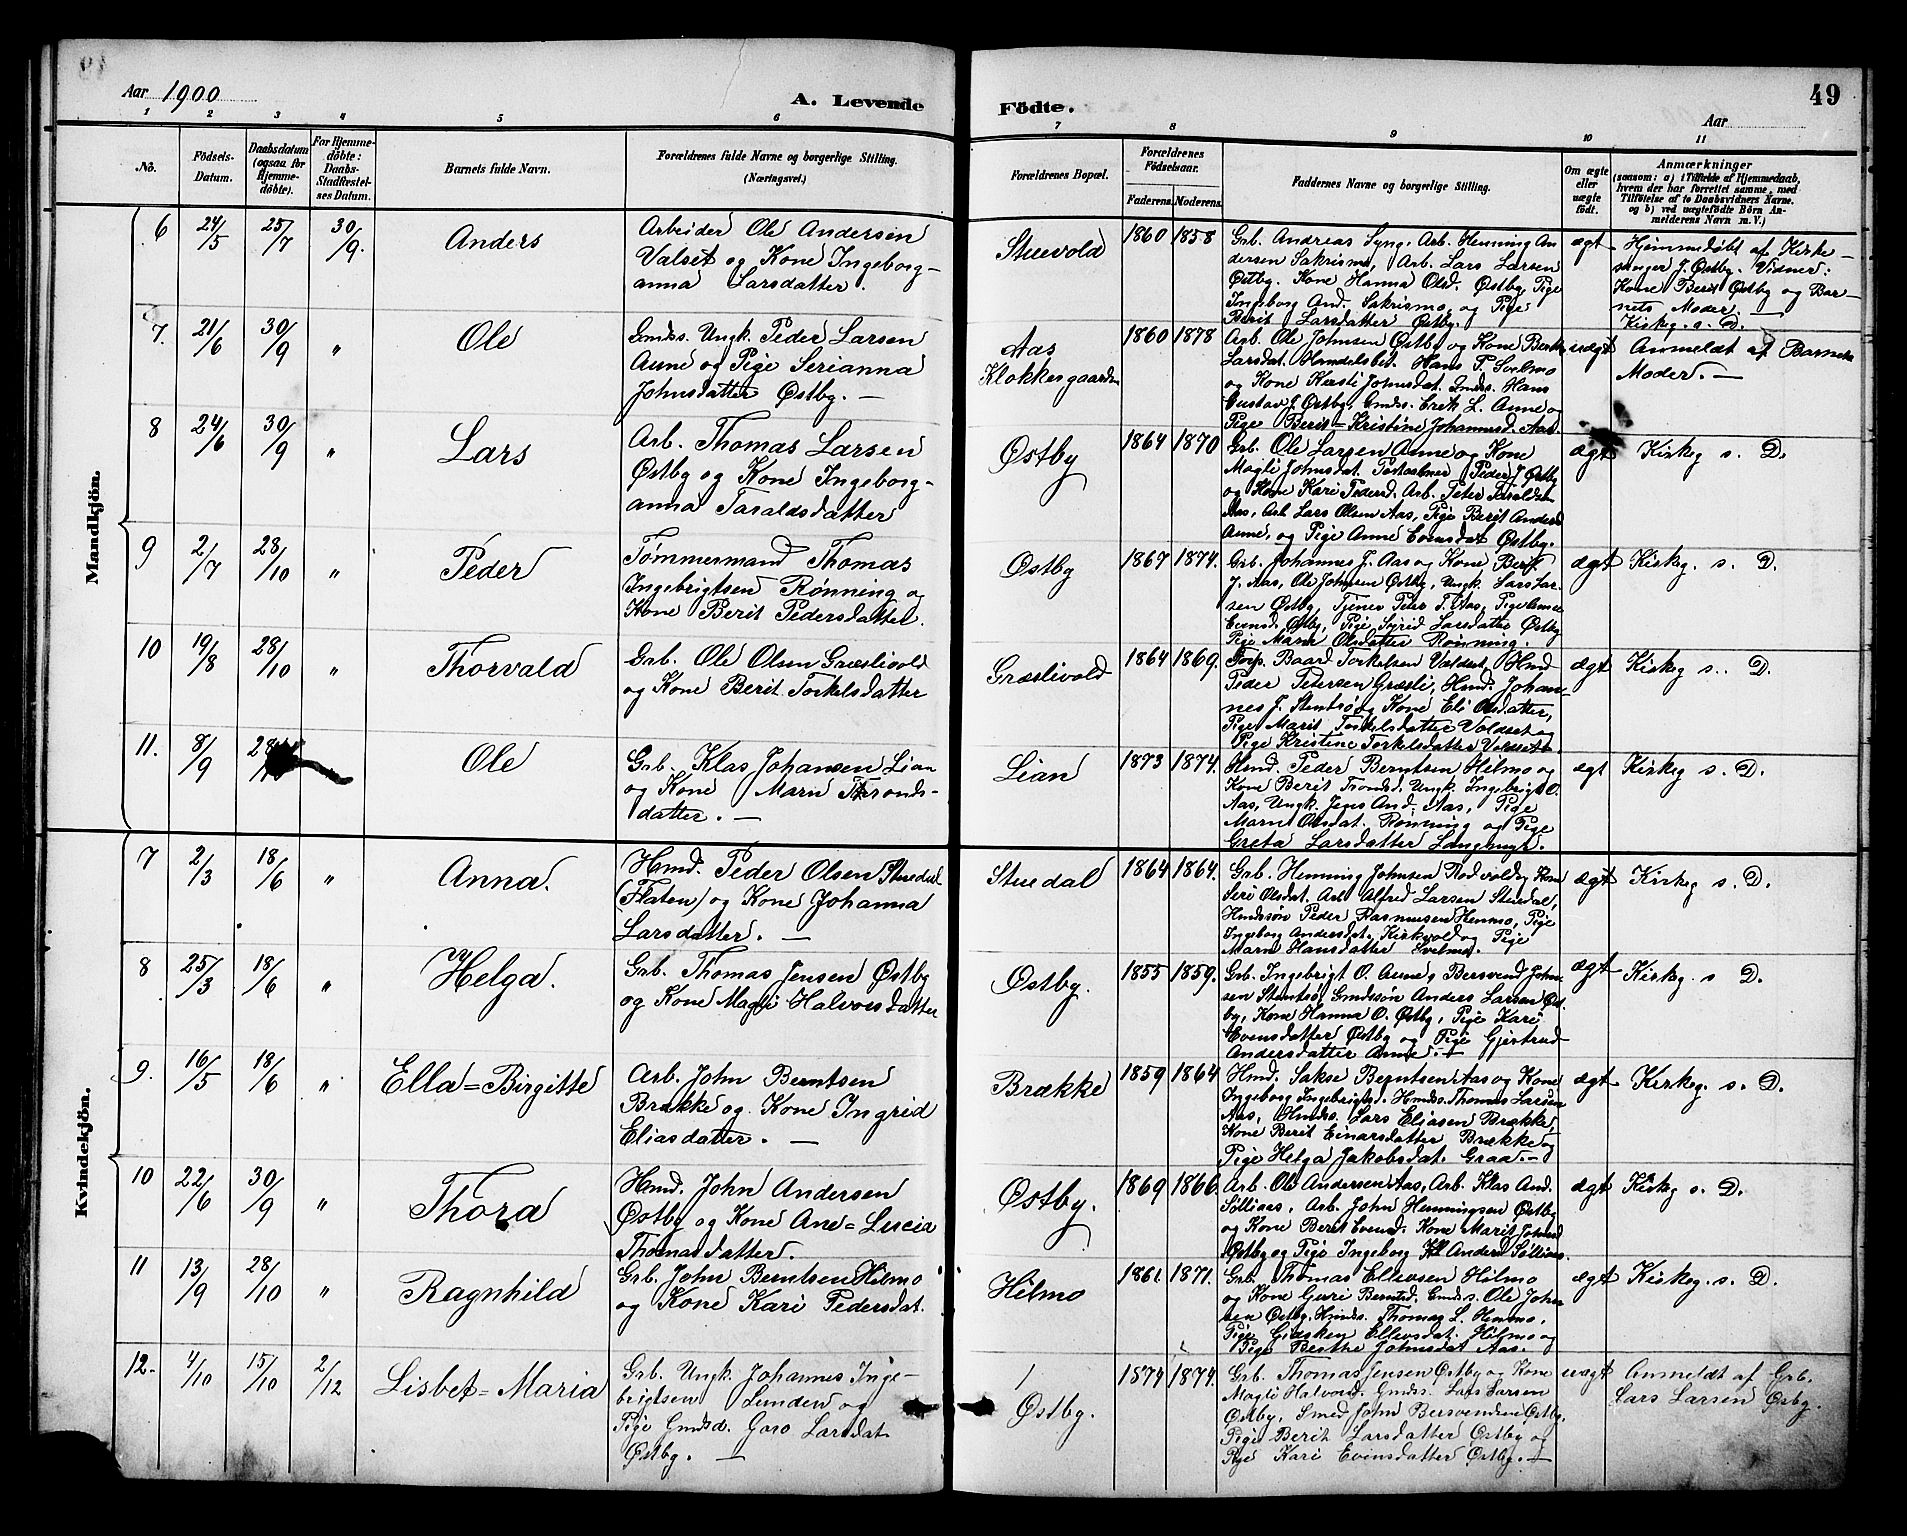 Aar 1900
A. Levende
Födte.
49
Aar
1 2 3 4 5 6 7 8 9 10 11
No.
Födsels-
Datum.
Daabsdatum
(ogsaa for
Hjemme-
döbte).
For Hjemme-
döbte:
Daabs-
Stadfæstel-
ses Datum.
Barnets fulde Navn.
Forældrenes fulde Navne og borgerlige Stilling.
(Næringsvei.)
Forældrenes Bopæl.
Forældrenes
Födselsaar.
Faderens. Moderens.
Faddernes Navne og borgerlige Stilling.
Om ægte
eller
uægte
født.
Anmærkninger
(saasom: a) i Tilfælde af Hjemmedaab,
hvem der har forrettet samme, med
Tilföielse af to Daabsvidners Navne,
og b) ved uægtefödte Börn An-
melderens Navn m. V.)
Mandkjön.
6 24/5 25/7 30/9. Anders
Arbeider Ole Andersen
Valset og Kone Ingeborg-
anna Larsdatter.
Stuevold
1860 1858
Grb. Andreas Lyng, Arb. Henning An
dersen Sakrismo, Arb. Lars Larsen
Østby. Kone Hanna Olsd. Østby Pige
Ingeborg And. Sakrismo, og Pige
Berit Larsdatter Østby.
ægt
Hjemmedøbt af Kirke-
sanger J. Østby. Vidner:
Kone Berit Østby og Bar-
nets Moder. —
Kirkeg. s. D.
7. 21/6 30/9 " Ole
Gmds. Ungk. Peder Larsen
Aune og Pige Serianna
Johnsdatter Østby. —
Aas
Klokkergaarden
1860 1878
Arb. Ole Johnsen Østby og Kone Berit
Larsdat. Handelsbet. Hans P. Svelmo
og Kone Kersti Johnsdat. Gmds. Hans
Gustav J. Østby, Gmds. Erik L. Aune og
Pige Berit-Kristine Johannesd. Aas.
uægt
Anmeldt af Barnets
Moder. —
8 24/6 30/9 " Lars
Arb. Thomas Larsen
Østby og Kone Ingeborg-
anna Taraldsdatter
Østby
1864 1870
Grb. Ole Larsen Aune og Kone
Magli Johnsdat. Peder J. Østby
og Kone Kari Pedersd. Arb. Peter Taraldsen
Aas, Arb. Lars Olsen Aas, Pige Berit Andersd
Aune, og Pige Anne Evensdat Østby.
ægt Kirkeg s. D.
9 2/7 28/10 " Peder
Tømmermand Thomas
Ingebrigtsen Rønning og
Kone Berit Pedersdatter.
Østby
1867 1874.
Grb. Johannes J. Aas og Kone Berit
J. Aas, Ole Johnsen Østby, Ungk. Lars Lar-
sen Østby, Tjener Peter T. Aas, Pige Anne
Evensd. Østby, Pige Sigrid Larsdatter Østby
Pige Marit Olsdatter Rønning.
ægt Kirkeg. s. D.
10 19/8 28/10 " Thorvald
Grb. Ole Olsen Græslivold
og Kone Berit Torkelsdatter
Græslivold
1864 1869.
Forp. Baard Torkelsen Valdset, Hmd
Peder Pedersen Græsli, Hmd. Johan-
nes J. Stentrø og Kone Eli Olsdatter,
Pige Marit Torkelsdatter Valdset og
Pige Kristine Torkelsdatter Valdset.
ægt Kirkeg s. D.
11. 8/9 28/ Ole
Grb. Klas Johansen Lian
og Kone Marit Tronds-
datter. —
Lian
1873 1874.
Hmd. Peder Berntsen Hilmo og
Kone Berit Trondsd. Ungk. Ingebrigt O.
Aas, Ungk. Jens And. Aas, Pige
Marit Olsdat. Rønning og Pige
Greta Larsdatter Langmyr.
ægt Kirkeg s. D.
Kvindekjön.
7 2/3 18/6 " Anna.
Hmd. Peder Olsen Stuedal
(Flaten) og Kone Johanna
Larsdatter. —
Stuedal
1864 1864.
Grb. Henning Johnsen Rodvold og Kone
Seri Olsdat. Arb Alfred Larsen Stuedal,
Hmdssøn Peder Rasmussen Henmo, Pige
Ingeborg Andersdat. Kirkvold og Pige
Marit Hansdatter Svelmo.
ægt Kirkeg s. D.
8 25/3 18/6 " Helga.
Grb. Thomas Jensen Østby
og Kone Magli Halvorsdatter
Østby.
1855 1859.
Grb. Ingebrigt O. Aune, Bersvend John-
sen Stentrø, Gmdssøn Anders Larsen Øst-
by, Kone Hanna O. Østby, Pige Kari
Evensdatter Østby og Pige Gjertrud
Andersdatter Aune. —
ægt Kirkeg. s D.
9. 16/5 18/6 " Ella=Birgitte
Arb. John Berntsen
Brække og Kone Ingrid
Eliasdatter. —
Brække
1859 1864
Hmd. Sakse Berntsen Aas og Kone
Ingeborg Ingebrigtsd. Hmds. Thomas Larsen
Aas, Hmds. Lars Eliasen Brække,
Kone Berit Einarsdatter Brække og
Pige Helga Jakobsdat. Graa. —
ægt Kirkeg. s. D.
10 22/6 30/9 " Thora
Hmd. John Andersen
Østby og Kone Ane=Lucia
Thomasdatter.
Østby.
1869 1866.
Arb. Ole Andersen Aas, Arb. Klas And.
Sølliaas, Arb. John Henningsen Østby
og Kone Berit Evensd. Kone Marit Johnsd
Østby og Pige Ingeborg Andersd Sølliaas.
ægt Kirkeg s. D.
11 13/9 28/10 " Ragnhild
Grb. John Berntsen Hilmo
og Kone Kari Pedersdat.
Hilmo
1861. 1871.
Grb. Thomas Ellevsen Hilmo
og Kone Guri Berntsd. Gmds. Ole John-
sen Østby, Hmds. Thomas L. Henmo,
Pige Gjesken Ellevsdat. Hilmo og
Pige Berthe Johnsdat Aas.
ægt Kirkeg. s. D.
12. 4/10 15/10 2/12 Lisbet=Maria
Grb. Ungk. Johannes Inge-
brigtsen Lunden og
Pige Gmdsd. Goro Larsdat
Østby. —
Østby.
1874 1874.
Grb. Thomas Jensen Østby og Kone
Magli Halvorsd. Gmds. Lars Larsen
Østby, Smed John Bersvendsen Østby,
Pige Berit Larsdatter Østby og
Pige Kari Evensdatter Østby. —
uægt
Anmeldt af Grb.
Lars Larsen Østby.